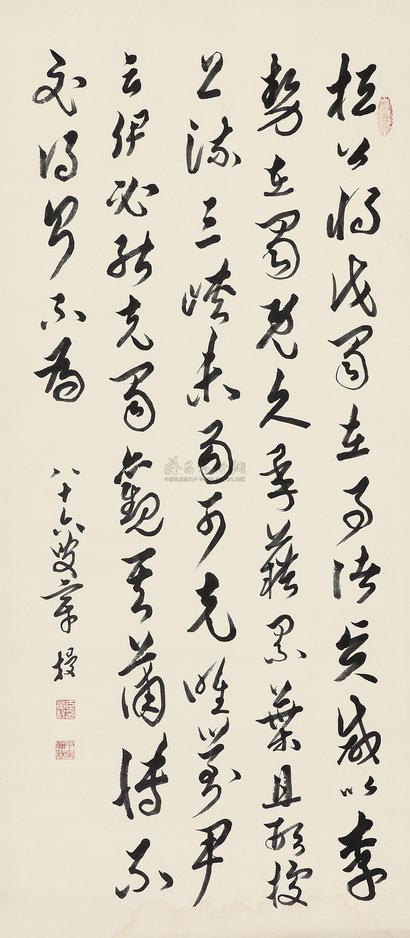 桓公将伐蜀在事诸贤咸以李
势在蜀既久承藉累叶且形據
上流三峡未易可克唯刘尹
云伊必能克蜀觀其蒲博不
必得则不為
八十六叟章梫